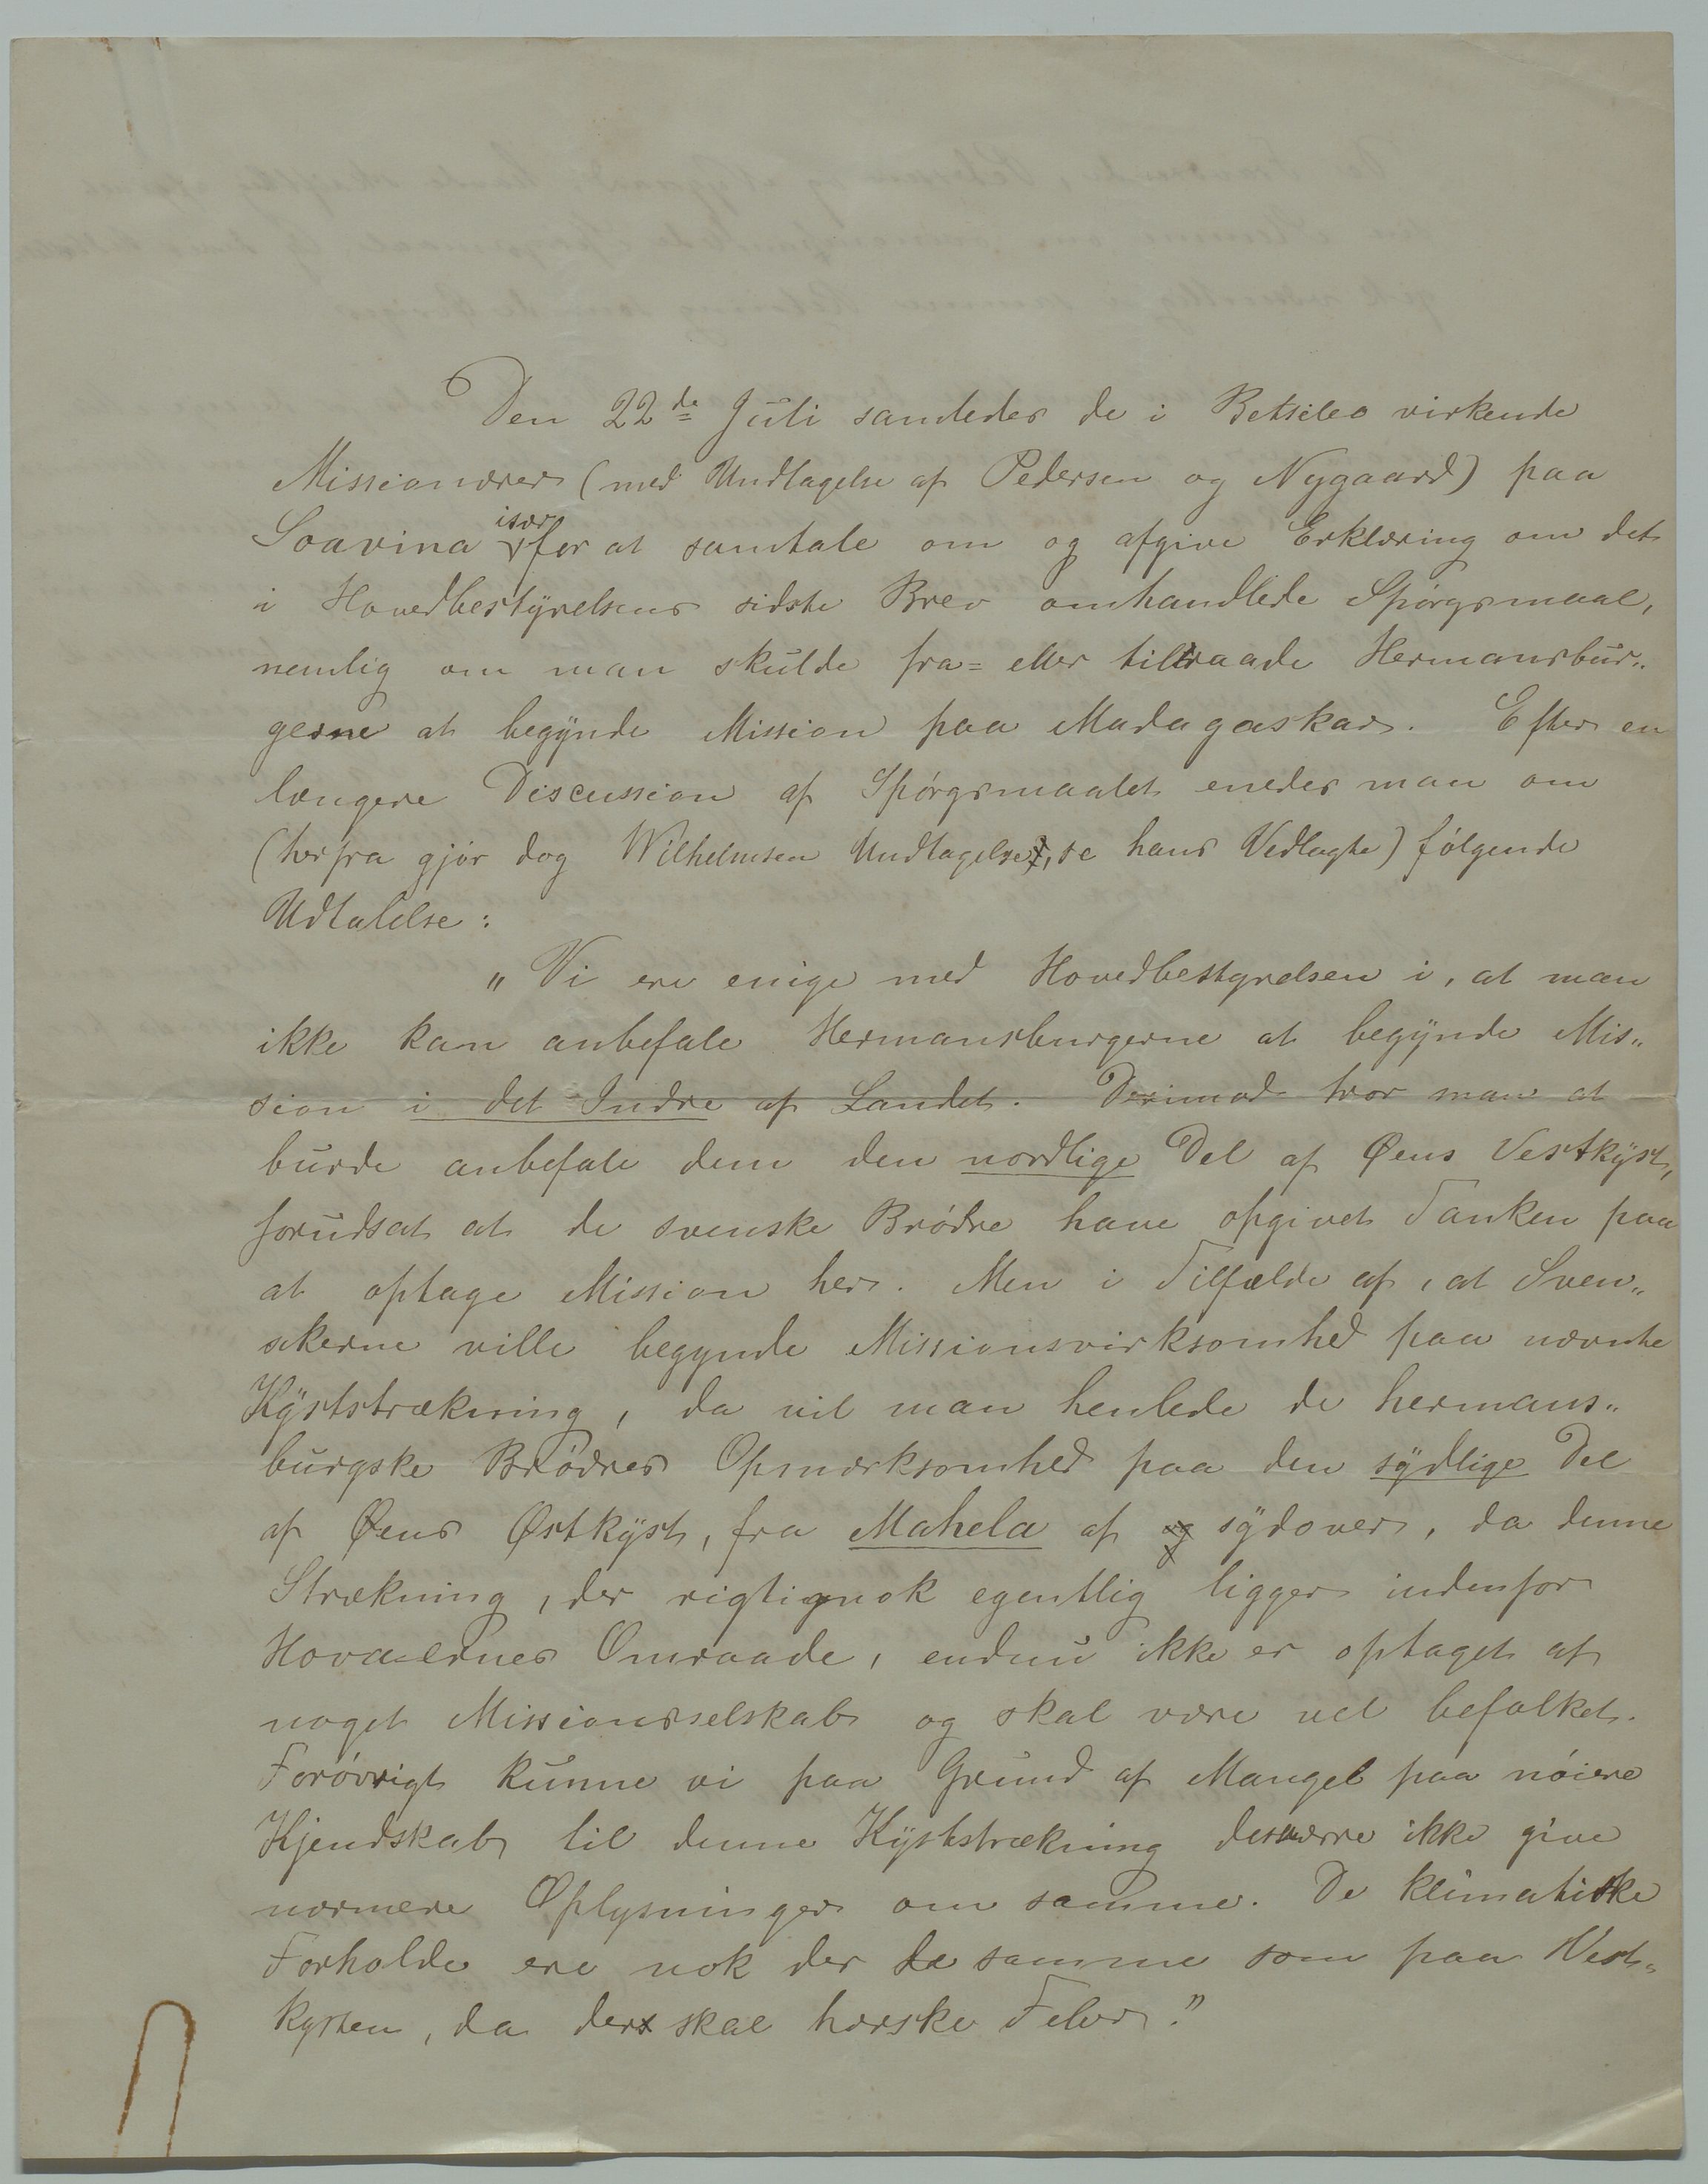 Den 22de Juli samledes de i Betsileo virkende
Missionærer (med Undtagelse af Pedersen og Nygaard) paa
Soavina især for at samtale om og afgive Erklæring om det
i Hovedbestÿrelsens sidste Brev omhandlede Spørgsmaal,
nemlig om man skulde fra= eller tilraade Hermansbur„
gerne at begÿnde Mission paa Madagaskar. Efter en
længere Discussion af Spørgsmaalet enedes man om
(herfra gjør dog Wilhelmsen Undtagelse, se hans Vedlagte) følgende
Udtalelse:
„Vi ere enige med Hovedbestyrelsen i, at man
ikke kan anbefale Hermansburgerne at begÿnde Mis„
sion i det Indre af Landet. Derimod tror man at
burde anbefale dem den nordlige Del af Øens Vestkÿst,
forudsat at de svenske Brødre have opgivet Tanken paa
at optage Mission her. Men i Tilfælde af, at Sven„
skerne ville begynde Missionsvirksomhed paa nævnte
Kÿststrækning, da vil man henlede de hermans„
burgske Brødres Opmærksomhed paa den sÿdlige Del
af Øens Østkÿst, fra Mahela af og sÿdover, da denne
Strækning, der rigtignok egentlig ligger indenfor
Hovaernes Omraade, endnu ikke er optaget af
noget Missionsselskab og skal være vel befolket.
Forøvrigt kunne vi paa Grund af Mangel paa nøiere
Kjendskab til denne Kÿststrækning desværre ikke give
nærmere Oplysninger om samme. De klimatiske
Forholde ere nok der de samme som paa Vest„
kysten, da der skal herske Feber."